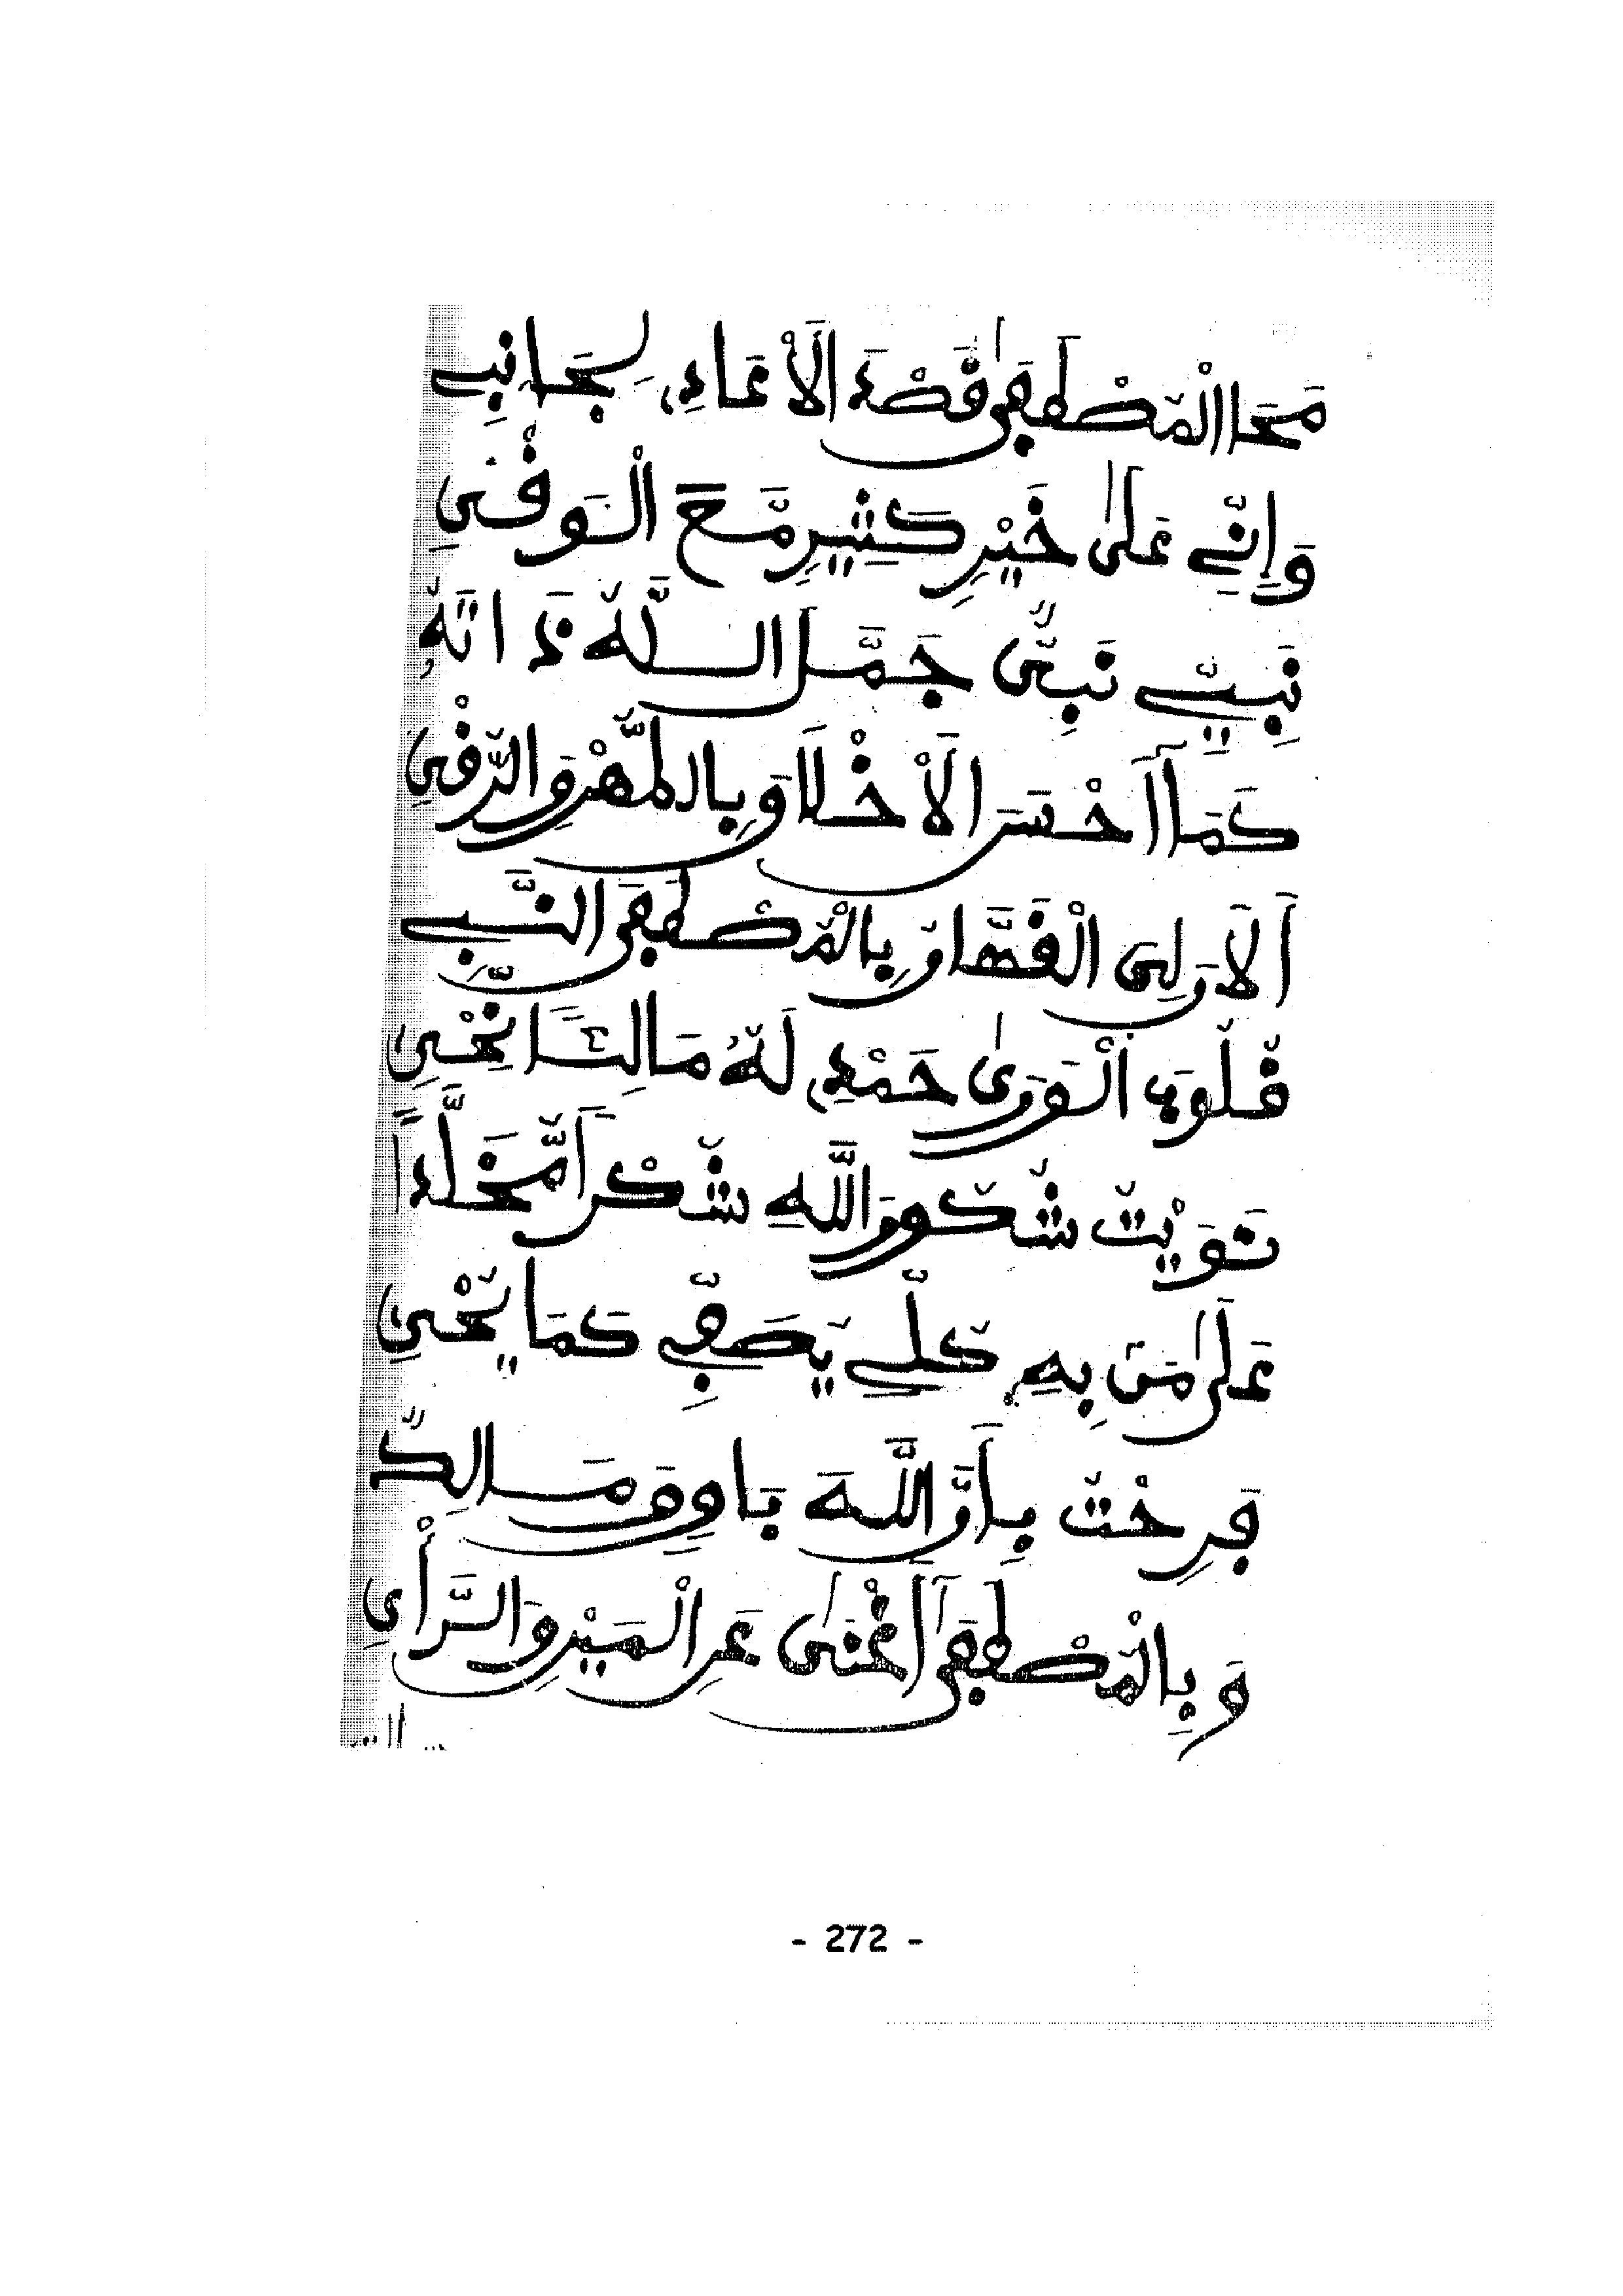 مَحَا الْمُصْطَفَىٰ قَصْدَ الَاعْدَاءِ لِجَانِبِے
وَإِنِّے عَلَىٰ خَيْرٍ كَثِيرٍ مَّعَ الْوَفْىِ
نَبِيِّے نَبِىٌّ جَمَّلَ اللَّهُ ذَاتَهُ
كَمَا أَحْسَنَ الَاخْلَاقَ بِالطُّهْرِ وَالرِّفْىِ
أَلَانَ لِىَ الْفُهَّارَ بِالْمُصْطَفَى النَّبِے
قُلُوبُ الْوَرَىٰ حَمْدِے لَهُ مَا لَنَا نُحْىِ
نَوَيْتُ شُكُورَ اللَّهِ شُكْراً مُّخَلَّداً
عَلَىٰ مَن بِهِ كُلِّے يُصَفِّے كَمَا يُحْىِ
فَرِحْتُ بِأَنَّ اللَّهَ بَاقٍ وَمَالِكٌ
وَبِالْمُصْطَفَىٰ أَغْنَىٰ عَنِ الْمَيْنِ وَالرَّأْىِ
- 272 -